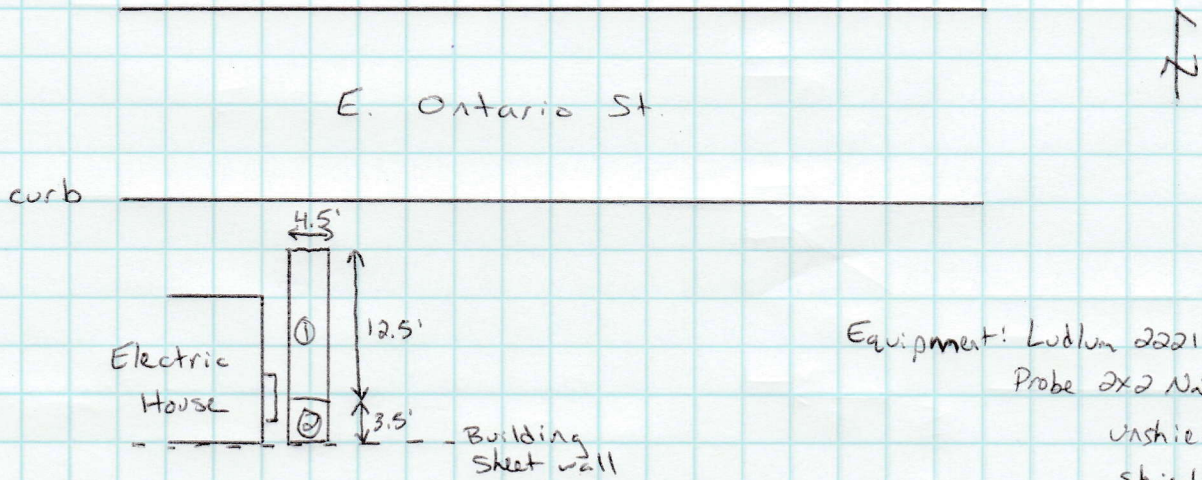 E. Ontario St.
curb
4.5'
12.5'
①
Electric
House
②
3.5'
Building
Sheet wall
N
Equipment: Ludlum 2221
Probe 2x2 Na
unshie
shiel